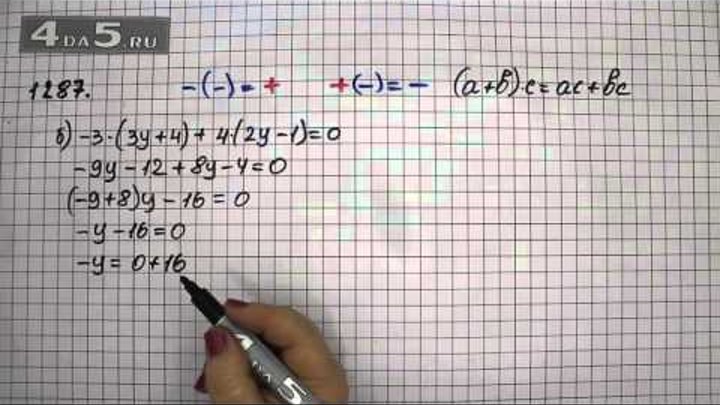 4DA5.RU
1287. -(-)=+ +(-)=- (a+b)·c=ac+bc
б) -3·(3y+4)+4·(2y-1)=0
-9y-12+8y-4=0
(-9+8)y-16=0
-y-16=0
-y=0+16
4 DA 5